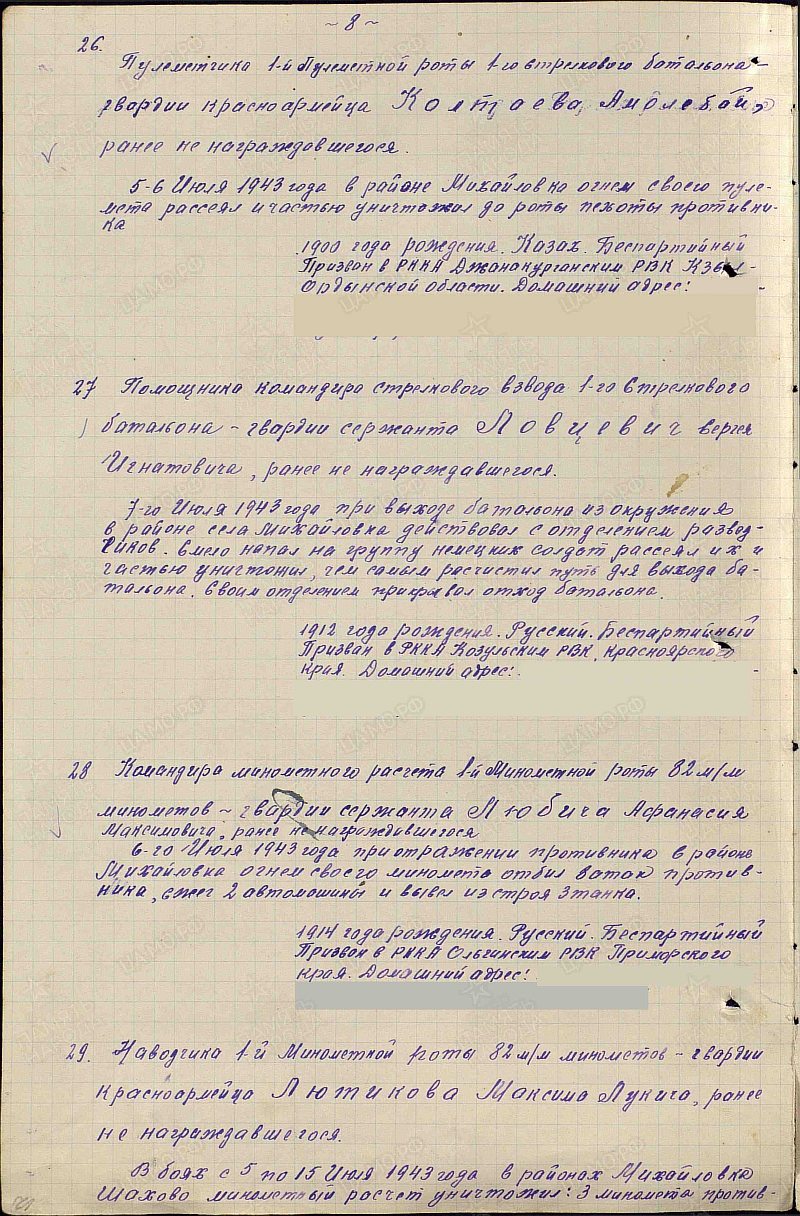 ~ 8 ~
26.
Пулеметчика 1-й Пулеметной роты 1-го стрелкового батальона -
гвардии красноармейца Колтаева,
ранее не награждовшегося.
5-6 Июля 1943 года в районе Михайловка огнем своего пуле-
мета рассеял и частью уничтожил до роты пехоты противни-
ка
1900 года рождения. Казах. Беспартийный
Призван в РККА Джанакурганским РВК Кзыл-
Ордынской области. Домашний адрес:
27 Помощника командира стрелкового взвода 1-го Стрелкового
батальона - гвардии сержанта Ловцевич Сергея
Игнатовича, ранее не награждавшегося.
7-го Июля 1943 года при выходе батальона из окружения
в районе села Михайловка действовал с отделением развед-
чиков. Смело напал на группу немецких солдат рассеял их и
частью уничтожил, чем самым расчистил путь для выхода ба-
тальона. Своим отделением прикрывал отход батальона.
1912 года рождения. Русский. Беспартийный
Призван в РККА Козульским РВК, Красноярского
края. Домашний адрес:
28 Командира минометного расчета 1-й Минометной роты 82 м/м
минометов ~ гвардии сержанта Любича Афанасия
Максимовича, ранее не награждившегося
6-го Июля 1943 года при отражении противника в районе
Михайловка огнем своего миномета отбил 8 атак против-
ника, сжег 2 автомошины и вывел из строя 3 танка.
1914 года рождения. Русский. Беспартийный
Призван в РККА Ольгинским РВК Приморского
края. Домашний адрес:
29. Наводчика 1-й Минометной роты 82 м/м минометов - гвардии
красноармейца Лютикова Максима Лукича, ранее
не награждавшегося.
В боях с 5 по 15 Июля 1943 года в районах Михайловка
Шахово минометный расчет уничтожил: 3 миномета против-